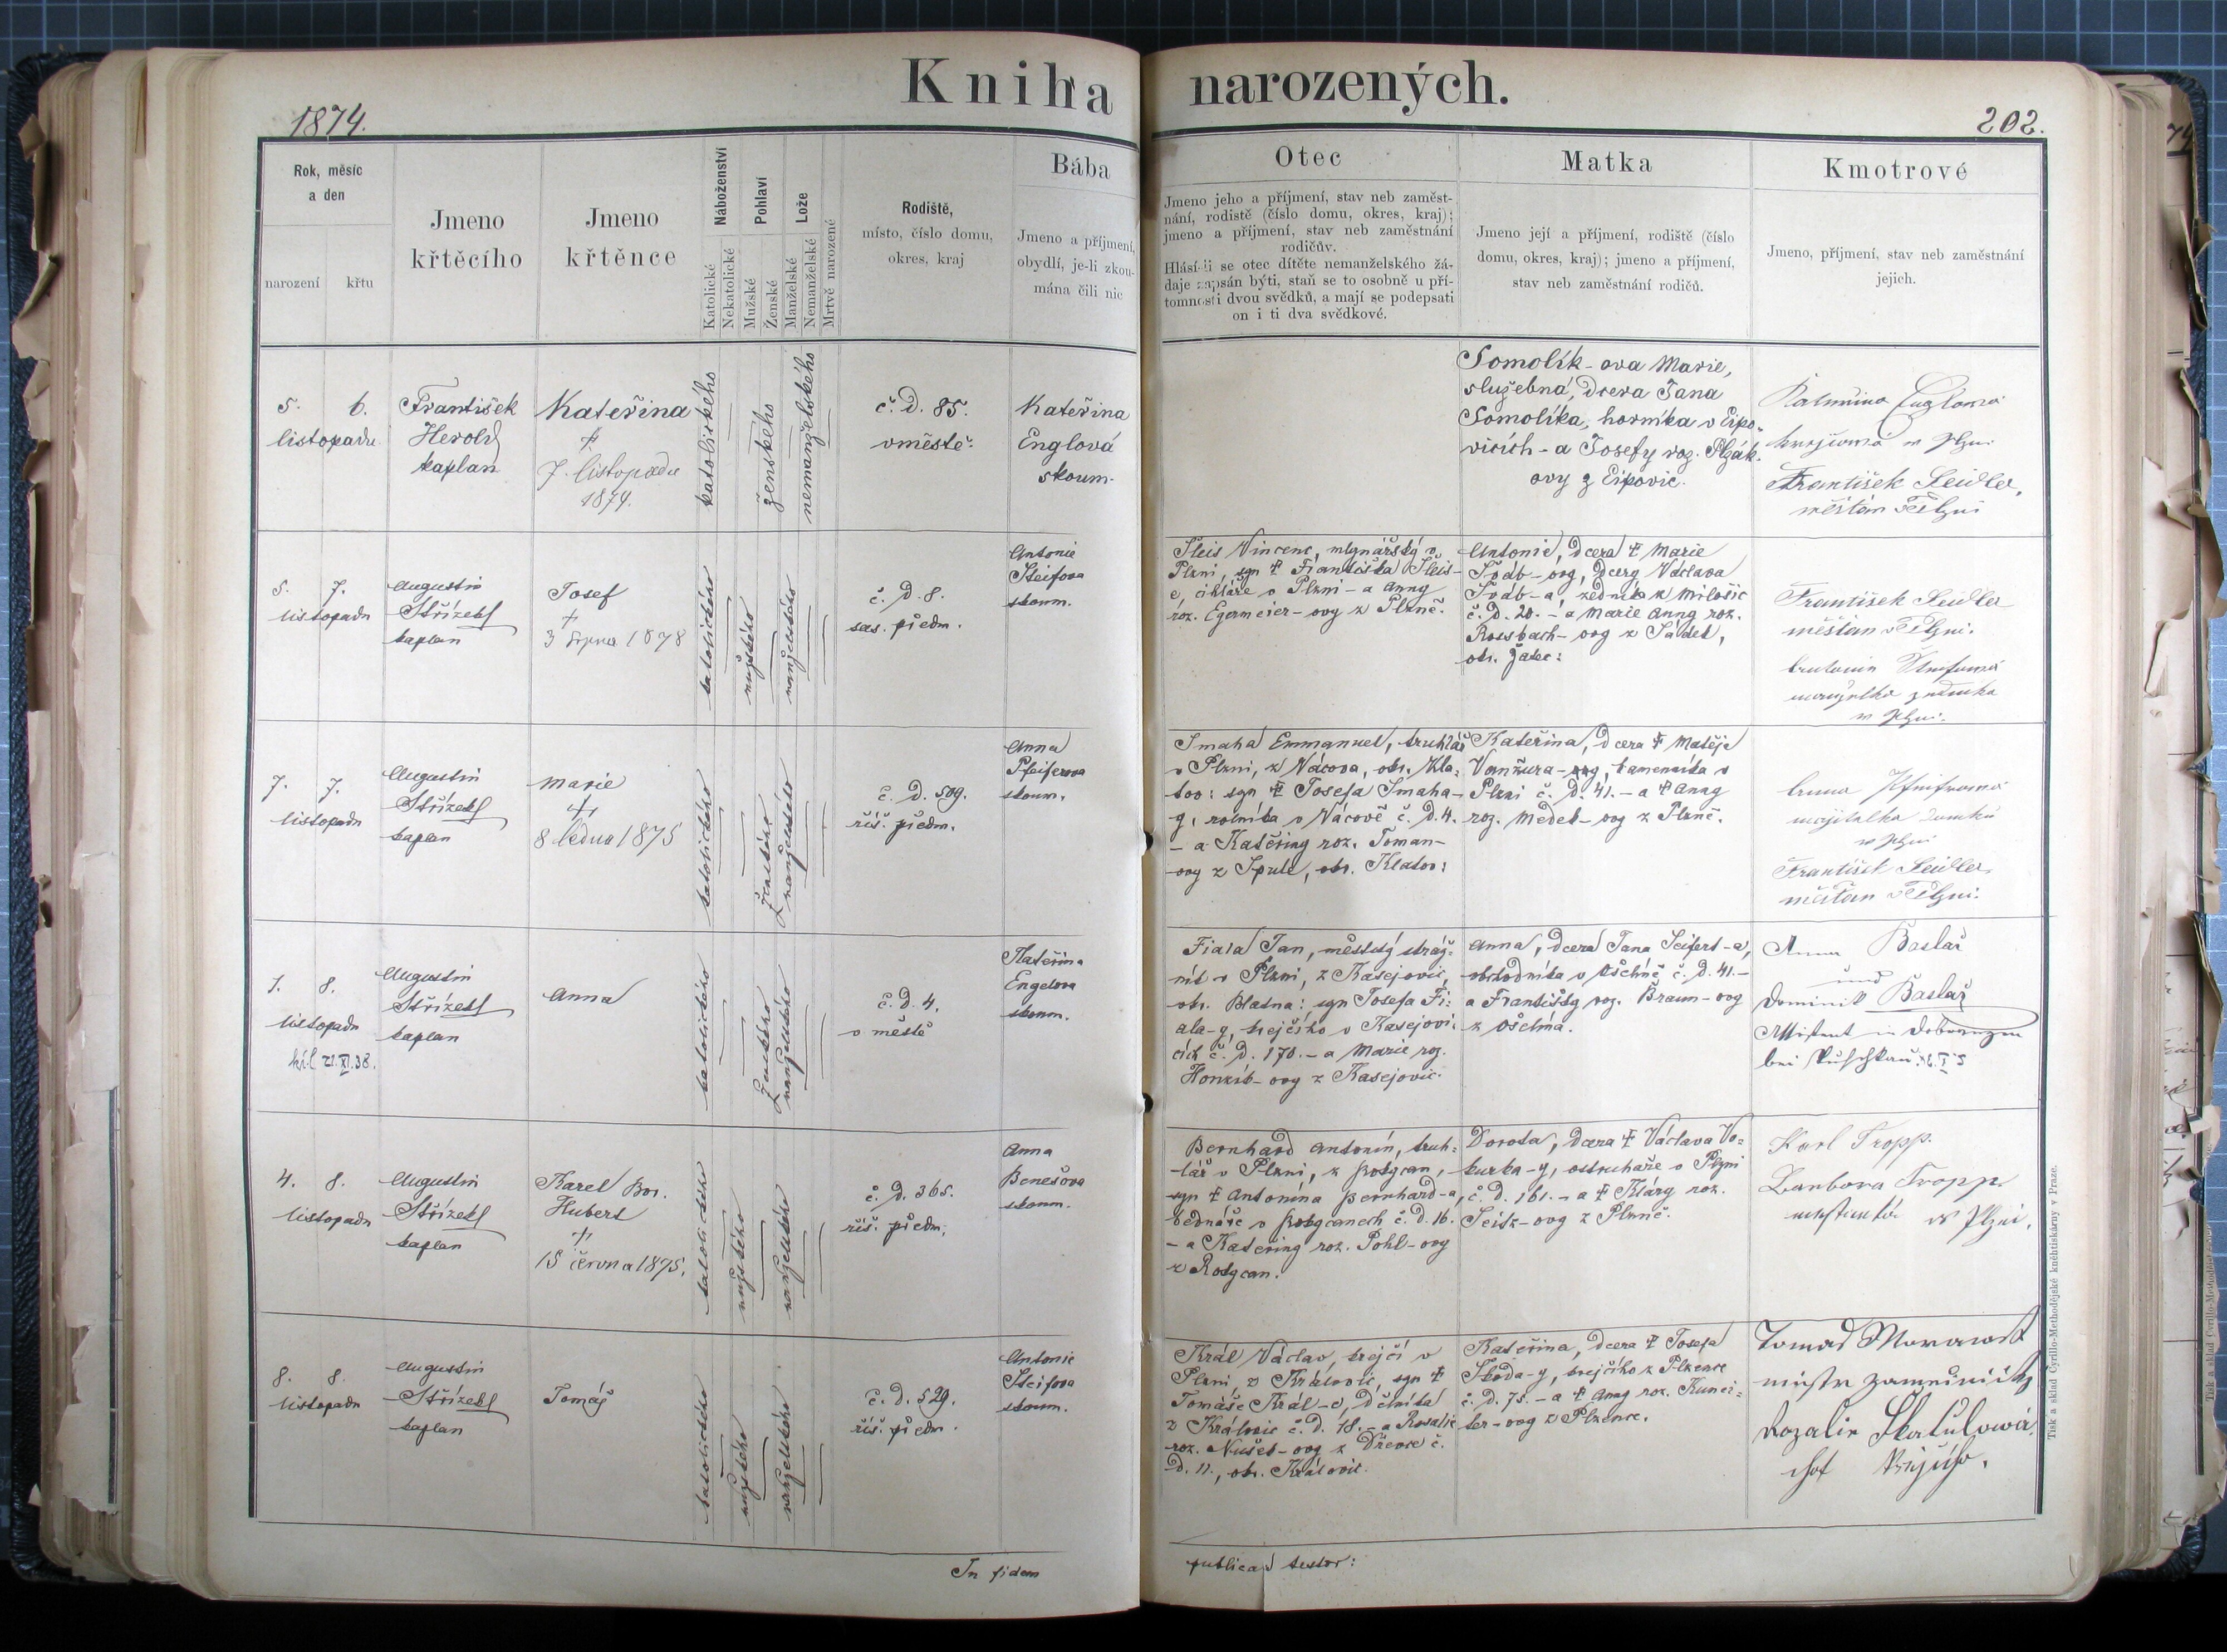 Kniha narozených.
1874.
202.
Rok, měsíc
a den
narození
křtu
Jmeno
křtěcího
Jmeno
křtěnce
Náboženství
Katolické
Nekatolické
Pohlaví
Mužské
Ženské
Lože
Manželské
Nemanželské
Mrtvě narozené
Rodiště,
místo, číslo domu,
okres, kraj
Bába
Jmeno a příjmení,
obydlí, je-li zkou-
mána čili nic
Otec
Jmeno jeho a příjmení, stav neb zaměst-
nání, rodistě (číslo domu, okres, kraj);
jmeno a příjmení, stav neb zaměstnání
rodičův.
Hlásí-li se otec dítěte nemanželského žá-
daje zapsán býti, staň se to osobně u pří-
tomnosti dvou svědků, a mají se podepsati
on i ti dva svědkové.
Matka
Jmeno její a příjmení, rodiště (číslo
domu, okres, kraj); jmeno a příjmení,
stav neb zaměstnání rodičů.
Kmotrové
Jmeno, příjmení, stav neb zaměstnání
jejich.
5. 6.
listopadu
František
Herold
kaplan
Kateřina
†
7. listopadu
1874.
katolického
ženského
nemanželského
č. d. 85.
v městě.
Kateřina
Englová
skoum.
Somolík-ova Marie,
služebná, dcera Jana
Somolíka, horníka v Eipo-
vicích - a Josefy roz. Plzák-
ovy z Eipovic.
František Seidler,
měšťan v Plzni
5. 7.
listopadu
Augustin
Střízekl
kaplan
Josef
†
3 srpna 1878
katolického
mužského
manželského
č. d. 8.
sas. předm.
Antonie
Steifova
skoum.
Šleis Vincenc, mlynářský v
Plzni, syn † Františka Šleis-
e, cihláře v Plzni - a Anny
roz. Egermeier-ovy z Plzně.
Antonie, dcera † Marie
Šváb-ovy, dcery Václava
Šváb-a, zedníka z Milošic
č. d. 20. - a Marie Anny roz.
Rossbach-ovy z Sádek,
okr. Žatec:
František Seidler
měšťan v Plzni.
7. 7.
listopadu
Augustin
Střízekl
kaplan
Marie
†
8 ledna 1875
katolického
ženského
manželského
č. d. 509.
říš. předm.
Anna
Pfeiferova
skoum.
Smaha Emmanuel, truhlář
v Plzni, z Nácova, okr. Kla-
tov: syn † Josefa Smaha-
y, rolníka v Nácově č. d. 4.
- a Kateřiny roz. Toman-
ovy z Spule, okr. Klatov:
Kateřina, dcera † Matěje
Vanžura-ovy, kameníka v
Plzni č. d. 41. - a † Anny
roz. Medek-ovy z Plzně.
František Seidler
měšťan v Plzni.
1. 8.
listopadu
Augustin
Střízekl
kaplan
Anna
katolického
ženského
manželského
č. d. 4.
v městě
Kateřina
Engelova
skoum.
Fiala Jan, městský stráž-
ník v Plzni, z Kasejovic,
okr. Blatna: syn Josefa Fi-
ala-y, krejčího v Kasejovi-
cích č. d. 170. - a Marie roz.
Honzík-ovy z Kasejovic.
Anna, dcera Jana Seifert-a,
obchodníka v Ošelíně č. d. 41. -
a Františky roz. Braum-ovy
z Ošelína.
Anna Baslař
und
Dominik Baslař
Assistent in
4. 8.
listopadu
Augustin
Střízekl
kaplan
Karel Bor.
Hubert
†
15 června 1875.
katolického
mužského
manželského
č. d. 365.
říš. předm.
Anna
Benešova
skoum.
Bernhard Antonín, truh-
lář v Plzni, z Rokycan,
syn † Antonína Bernhard-a,
bednáře v Rokycanech č. d. 16.
- a Kateřiny roz. Pohl-ovy
z Rokycan.
Dorota, dcera † Václava Vo-
kurka-y, ostruhaře v Plzni
č. d. 161. - a † Kláry roz.
Seitz-ovy z Plzně.
Karl Tropp.
Barbora Tropp
v Plzni.
8. 8.
listopadu
Augustin
Střízekl
kaplan
Tomáš
katolického
mužského
manželského
č. d. 529.
říš. předm.
Antonie
Steifova
skoum.
Král Václav, krejčí v
Plzni, z Královic, syn †
Tomáše Král-e, dělníka
z Královic č. d. 18. - a Rosalie
roz. Nušek-ovy z Dřevce č.
d. 11., okr. Královic.
Kateřina, dcera † Josefa
Škoda-y, krejčího z Plzence
č. d. 75. - a † Anny roz. Kunci-
ker-ovy z Plzence.
Rozalie Skatulowá,
In fidem
publicam testor:
Tisk a sklad Cyrillo-Methodějské knihtiskárny v Praze.